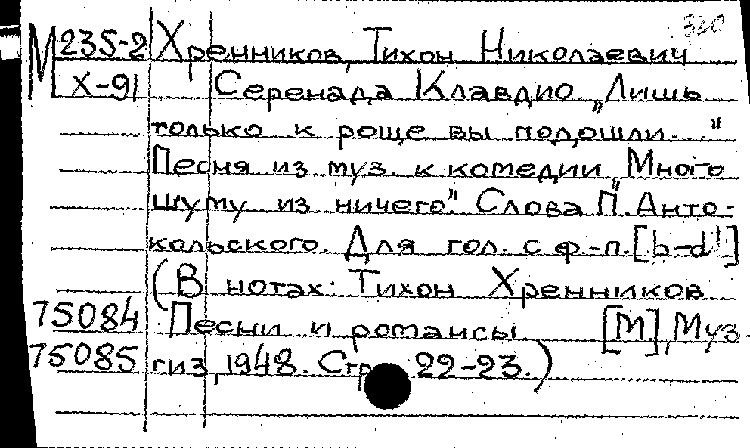 320
М 235-2 Хренников, Тихон Николаевич
Х-91 Серенада Клавдио „Лишь
только к роще вы подошли..."
Песня из муз. к комедии „Много
шуму из ничего". Слова П. Анто-
кольского. Для гол. с ф-п. [b-d¹]
(В нотах: Тихон Хренников
75084 Песни и романсы [М], Муз-
75085 гиз, 1948. Стр. 22-23.)